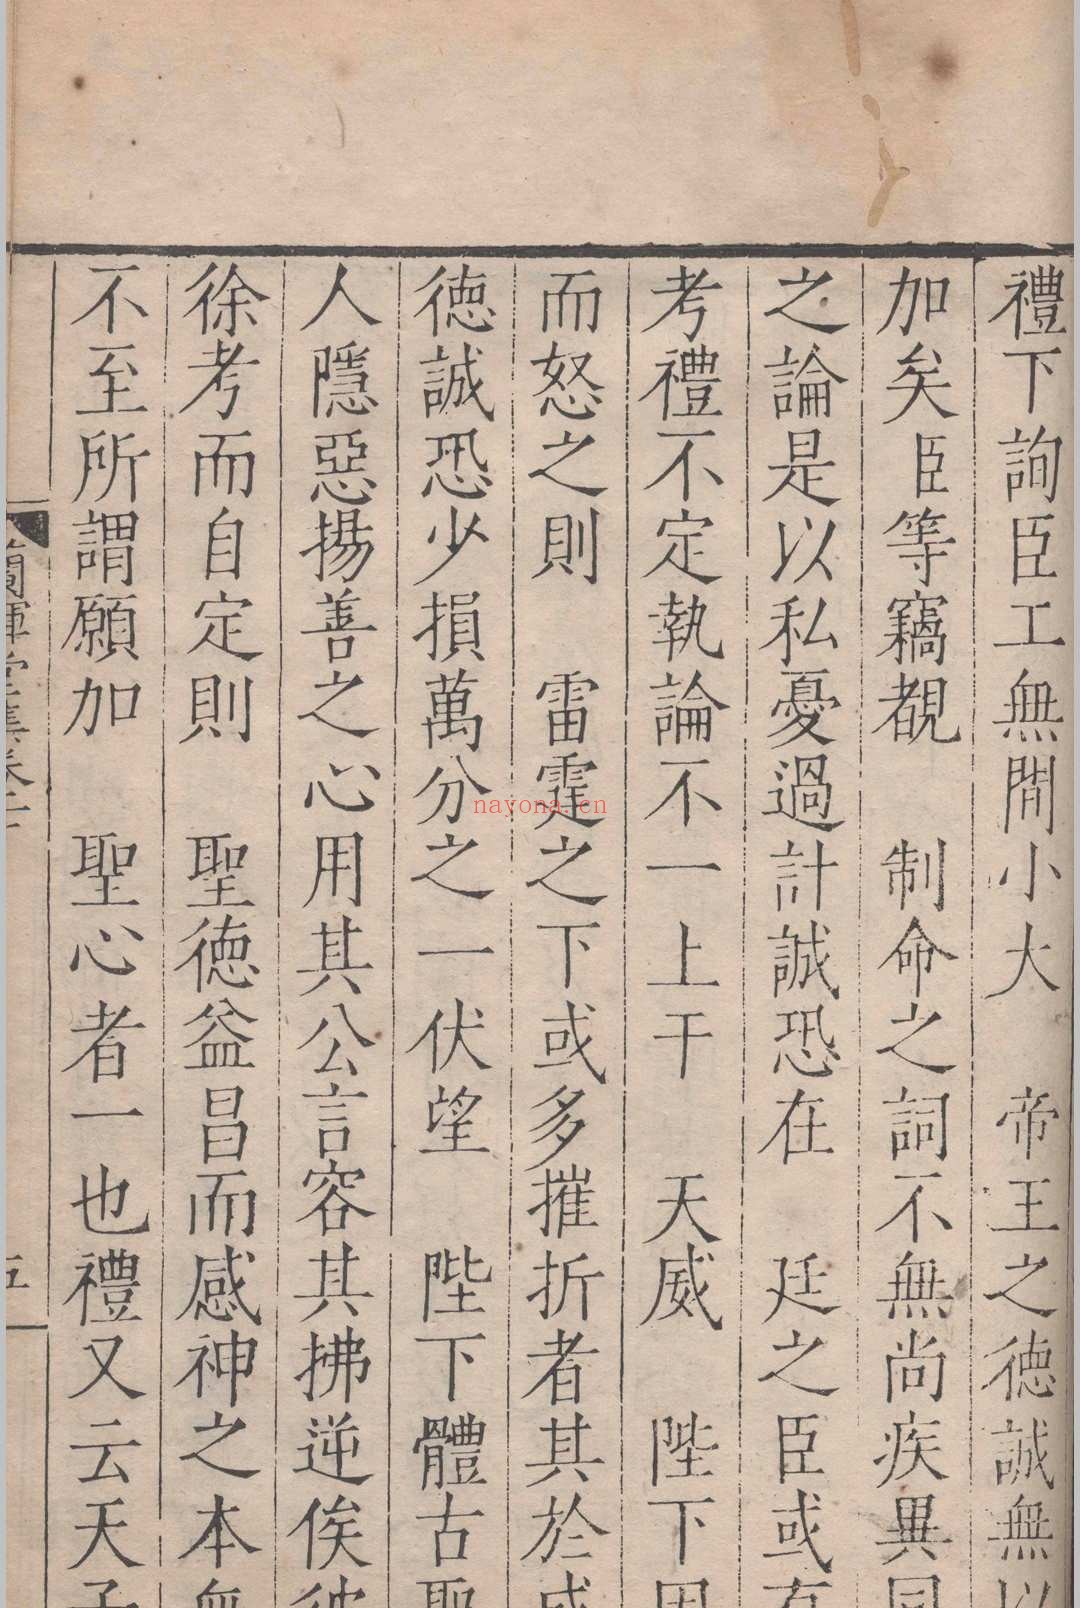 禮下詢臣工無間小大　帝王之德誠無以
加矣臣等竊覩　制命之詞不無尚疾異同
之論是以私憂過計誠恐在　廷之臣或有
考禮不定執論不一上干　天威　陛下因
而怒之則　雷霆之下或多摧折者其於盛
德誠恐少損萬分之一伏望　陛下體古聖
人隱惡揚善之心用其公言容其拂逆俟彼
徐考而自定則　聖德益昌而感神之本無
不至所謂願加　聖心者一也禮又云天子
蘭暉堂集卷
五
nayona.cn